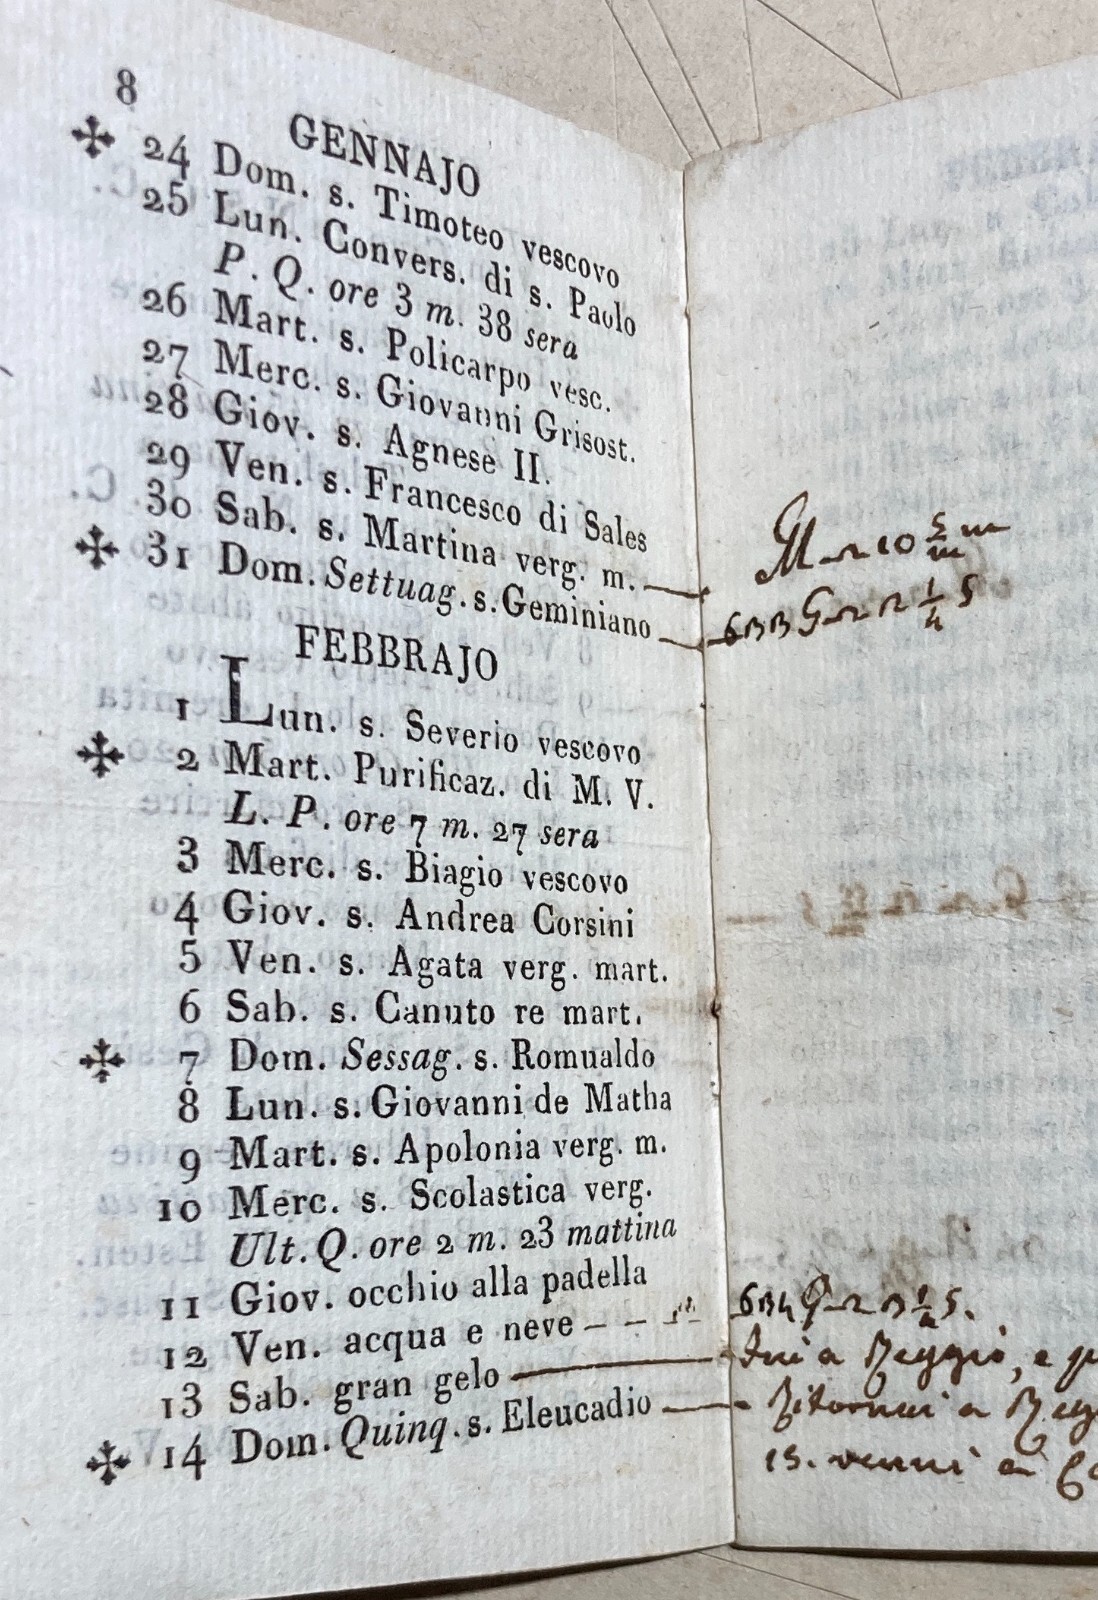 8
GENNAJO
24 Dom. s. Timoteo vescovo
25 Lun. Convers. di s. Paolo
P. Q. ore 3 m. 38 sera
26 Mart. s. Policarpo vesc.
27 Merc. s. Giovanni Grisost.
28 Giov. s. Agnese II.
29 Ven. s. Francesco di Sales
30 Sab. s. Martina verg. m.
31 Dom. Settuag. s. Geminiano
FEBBRAJO
1 Lun. s. Severio vescovo
2 Mart. Purificaz. di M. V.
L. P. ore 7 m. 27 sera
3 Merc. s. Biagio vescovo
4 Giov. s. Andrea Corsini
5 Ven. s. Agata verg. mart.
6 Sab. s. Canuto re mart.
7 Dom. Sessag. s. Romualdo
8 Lun. s. Giovanni de Matha
9 Mart. s. Apolonia verg. m.
10 Merc. s. Scolastica verg.
Ult. Q. ore 2 m. 23 mattina
11 Giov. occhio alla padella
12 Ven. acqua e neve
13 Sab. gran gelo
14 Dom. Quinq. s. Eleucadio
a Reggio, e
Ritornai a
15. venni a